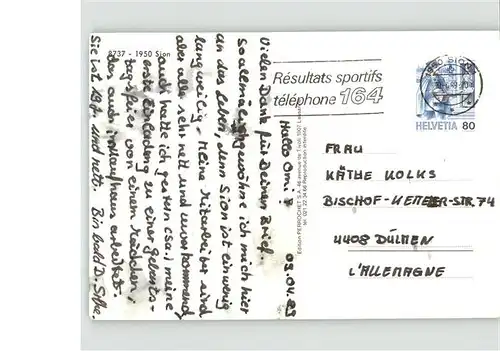 8737 - 1950 Sion
Hallo Omi!
09.04.89
Vielen Dank für Deinen Brief.
So allmählich gewöhne ich mich hier
an das Leben, denn Sion ist ein wenig
langweilig. Meine Mitarbeiter sind
aber alle sehr nett und zuvorkommend,
auch hatte ich gestern (Sa.) meine
erste Einladung zu einer Geburts-
tagsfeier von einem Mädchen,
das auch im Kaufhaus arbeitet.
Sie ist 19 J. und nett. Bis bald D.
Edition PERROCHET S.A.
Résultats sportifs
téléphone 164
1950 SION
HELVETIA 80
FRAU
KÄTHE KOLKS
BISCHOF-KETTELER-STR. 74
4408 DÜLMEN
L'ALLEMAGNE